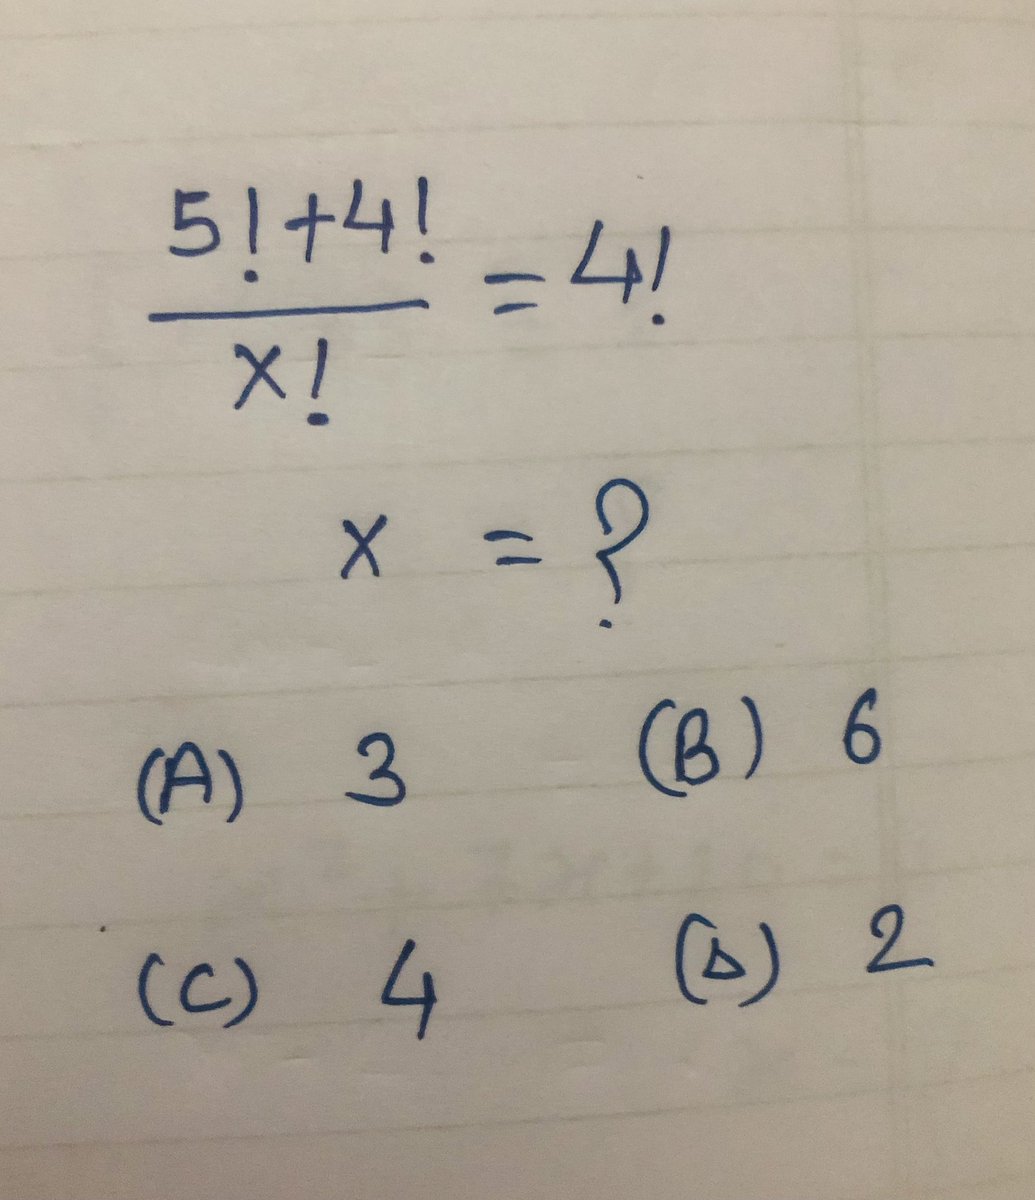 5!+4!
/ x! = 4!
x = ?
(A) 3 (B) 6
(C) 4 (D) 2